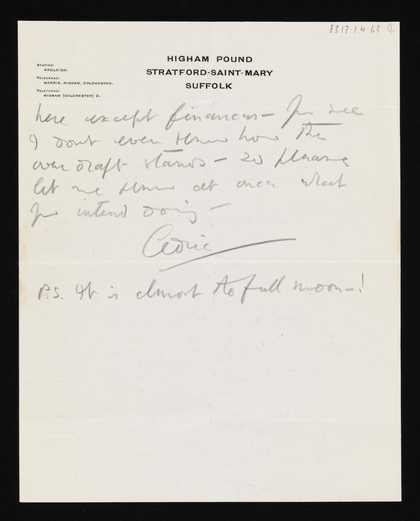 8317.1.4.63
HIGHAM POUND
STRATFORD-SAINT-MARY
SUFFOLK
STATION:
ARDLEIGH.
TELEGRAMS:
MORRIS, HIGHAM, COLCHESTER.
TELEPHONE:
HIGHAM (COLCHESTER) 2.
here except finances — You see
I dont even know how the
over draft stands — so please
let me know at once what
you intend doing —
Cedric
P.S. It is almost to full moon — !